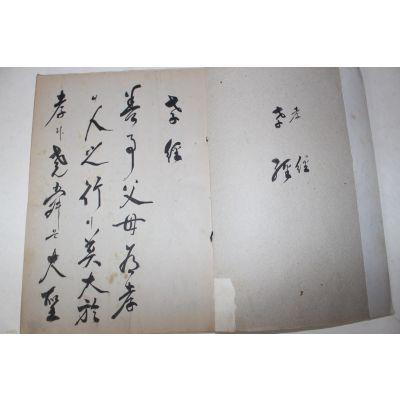 孝經
孝經
孝經
善事父母為孝
人之行 莫大於
孝 堯舜은大聖